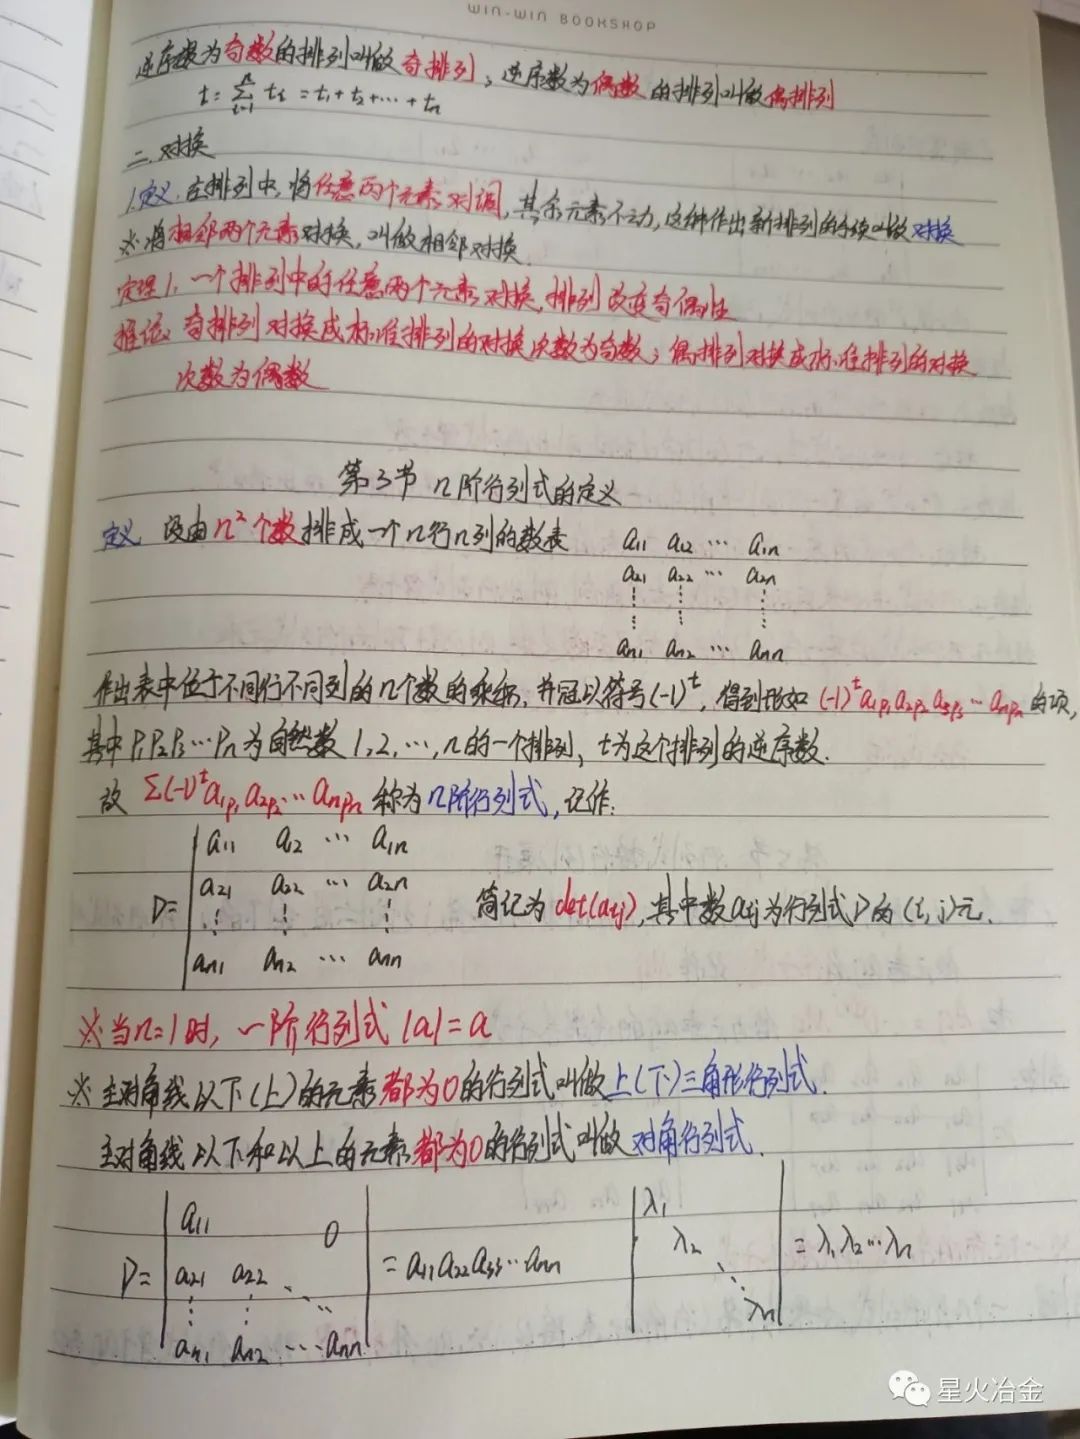 WIN-WIN BOOKSHOP
逆序数为奇数的排列叫做奇排列；逆序数为偶数的排列叫做偶排列
t=∑_{i=1}^{n} t_i = t_1+t_2+…+t_n
二.对换
1.定义.在排列中,将任意两个元素对调,其余元素不动,这种作出新排列的手续叫做对换
※将相邻两个元素对换,叫做相邻对换.
定理1.一个排列中的任意两个元素对换,排列改变奇偶性
推论:奇排列对换成标准排列的对换次数为奇数；偶排列对换成标准排列的对换
次数为偶数
第3节 n阶行列式的定义
定义 设由n²个数排成一个n行n列的数表 a11 a12 … a1n
a21 a22 … a2n
⋮ ⋮ ⋮
an1 an2 … ann
作出表中位于不同行不同列的n个数的乘积,并冠以符号(-1)^t,得到形如 (-1)^t a1p1 a2p2 a3p3…anpn的项,
其中P1P2P3…Pn为自然数1,2,…,n的一个排列,t为这个排列的逆序数.
故 ∑(-1)^t a1p1 a2p2…anpn 称为n阶行列式,记作:
a11 a12 … a1n
a21 a22 … a2n
D= ⋮ ⋮ ⋮ 简记为det(aij),其中数aij为行列式D的(i,j)元.
an1 an2 … ann
※当n=1时,一阶行列式|a|=a
※主对角线以下(上)的元素都为0的行列式叫做上(下)三角形行列式.
主对角线以下和以上的元素都为0的行列式叫做对角行列式.
a11 0 λ1
D= a21 a22 ⋱ =a11a22a33…ann λ2 =λ1λ2…λn
⋮ ⋮ ⋱
an1 an2 … ann λn
星火冶金